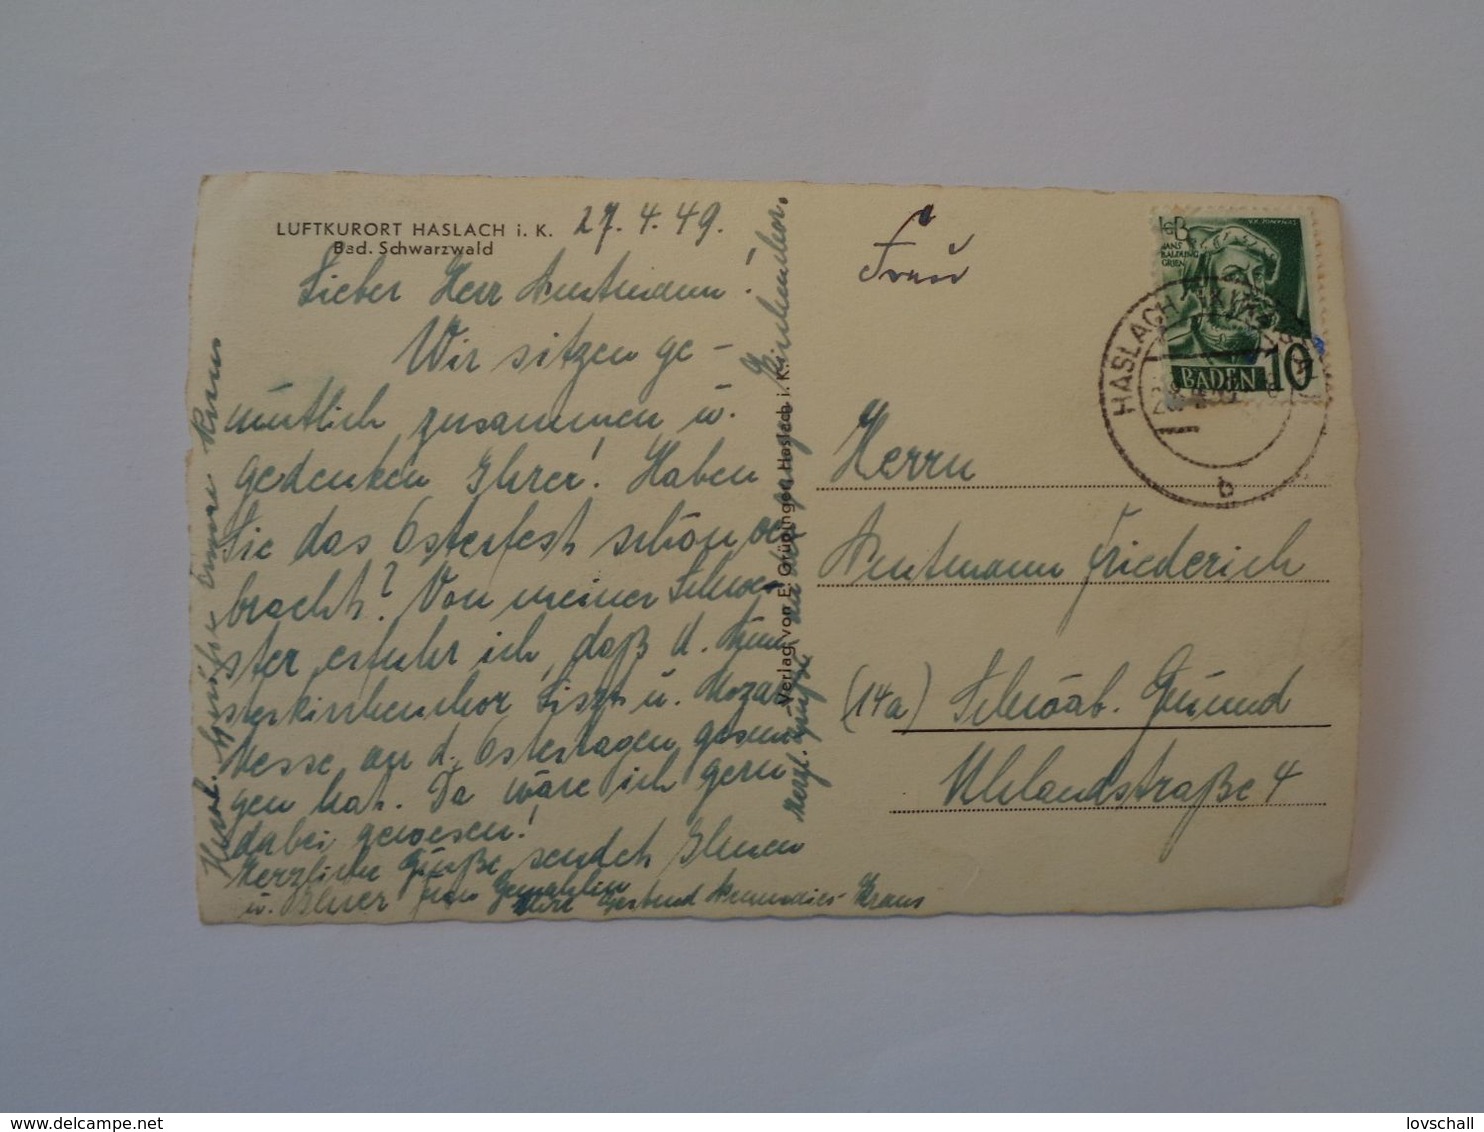 LUFTKURORT HASLACH i. K.
Bad. Schwarzwald
27.4.49.
Lieber Herr Amtmann!
Wir sitzen ge-
mütlich zusammen u.
gedenken Ihrer! Haben
Sie das Osterfest schön ver
bracht? Von meiner Schwe
ster erfuhr ich, daß d. Mün
sterkirchenchor Liszt u. Mozart
Messe an d. Ostertagen gesun
gen hat. Da wäre ich gern
dabei gewesen!
Herzliche Grüße sendet Ihnen
u. Ihrer Frau Gemahlin
Ihre Gertrud Kraus
Herzl. Grüße
Kirchenchor.
Verlag von E. Grüninger, Haslach i. K.
Frau
HANS
BALDUNG
GRIEN
BADEN 10
HASLACH
b
Herrn
Amtmann Friederich
(14a) Schwäb. Gmünd
Uhlandstraße 4
delcampe.net
lovschall